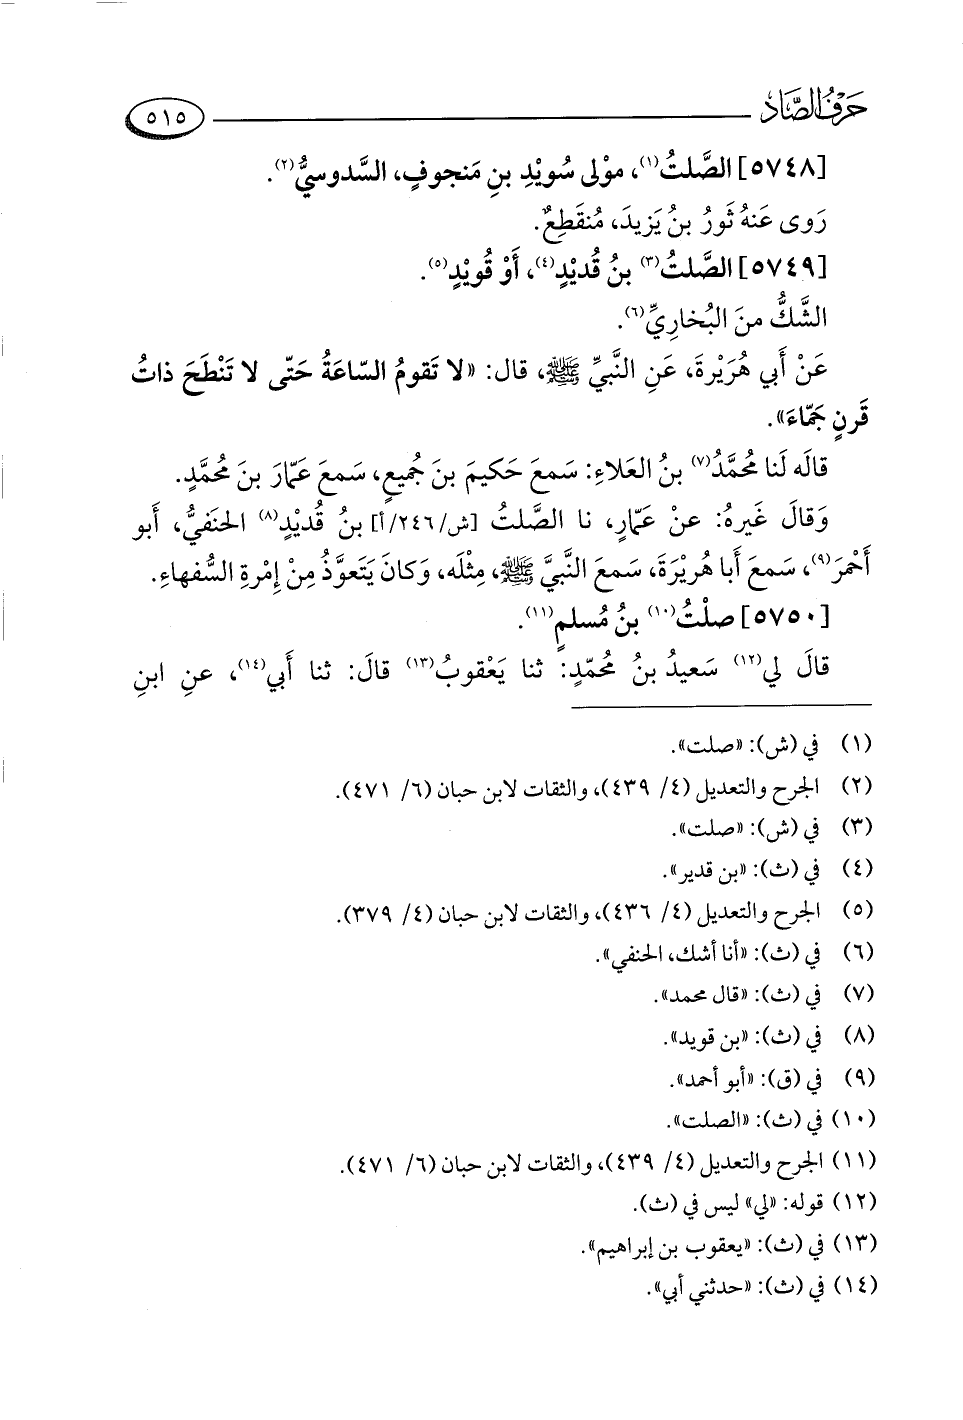 حَرْفُ الصَّاد ٥١٥
[٥٧٤٨] الصَّلتُ(١)، موْلى سُويْدِ بنِ مَنجوفٍ، السَّدوسيُّ(٢).
رَوى عَنهُ ثَورُ بنُ يَزيدَ، مُنقَطِعٌ.
[٥٧٤٩] الصَّلتُ(٣) بنُ قُديْدٍ(٤)، أَوْ قُويْدٍ(٥).
الشَّكُّ منَ البُخاريِّ(٦).
عَنْ أَبي هُرَيْرةَ، عَنِ النَّبيِّ ﷺ، قال: «لا تَقومُ السّاعَةُ حَتّى لا تَنْطَحَ ذاتُ
قَرنٍ جَمّاءَ».
قالَه لَنا محُمَّدُ(٧) بنُ العَلاءِ: سَمعَ حَكيمَ بنَ جُميعٍ، سَمعَ عَمّارَ بنَ محُمَّدٍ.
وَقالَ غَيرهُ: عنْ عَمّارٍ، نا الصَّلتُ [ش/٢٤٦/أ] بنُ قُديْدٍ(٨) الحَنَفيُّ، أَبو
أَحْمرَ(٩)، سَمعَ أَبا هُريْرَةَ، سَمعَ النَّبيَّ ﷺ، مِثْلَه، وَكانَ يَتَعوَّذُ مِنْ إِمْرةِ السُّفهاءِ.
[٥٧٥٠] صلْتُ(١٠) بنُ مُسلمٍ(١١).
قالَ لي(١٢) سَعيدُ بنُ محُمّدٍ: ثنا يَعْقوبُ(١٣) قالَ: ثنا أَبي(١٤)، عنِ ابنِ
(١) في (ش): «صلت».
(٢) الجرح والتعديل (٤/ ٤٣٩)، والثقات لابن حبان (٦/ ٤٧١).
(٣) في (ش): «صلت».
(٤) في (ث): «بن قدير».
(٥) الجرح والتعديل (٤/ ٤٣٦)، والثقات لابن حبان (٤/ ٣٧٩).
(٦) في (ث): «أنا أشك، الحنفي».
(٧) في (ث): «قال محمد».
(٨) في (ث): «بن قويد».
(٩) في (ق): «أبو أحمد».
(١٠) في (ث): «الصلت».
(١١) الجرح والتعديل (٤/ ٤٣٩)، والثقات لابن حبان (٦/ ٤٧١).
(١٢) قوله: «لي» ليس في (ث).
(١٣) في (ث): «يعقوب بن إبراهيم».
(١٤) في (ث): «حدثني أبي».